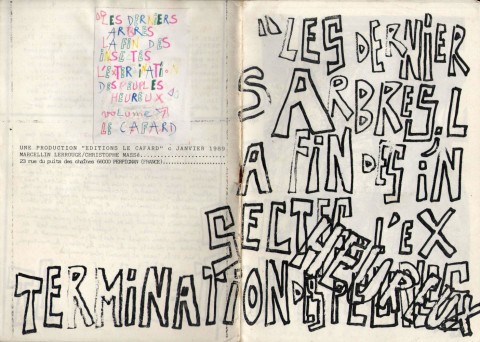 "LES DERNIERS
ARBRES
LA FIN DES
INSECTES
L'EXTERMINATION
DES PEUPLES
HEUREUX"
volume
LE CAFARD
UNE PRODUCTION "EDITIONS LE CAFARD" © JANVIER
CHRISTOPHE MASSE
23 rue du puits des chaînes 66000 PERPIGNAN (FRANCE)
"LES DERNIER
S ARBRES, L
A FIN DES IN
SECTES L'EX
TERMINATION DES PEUPLES
HEUREUX